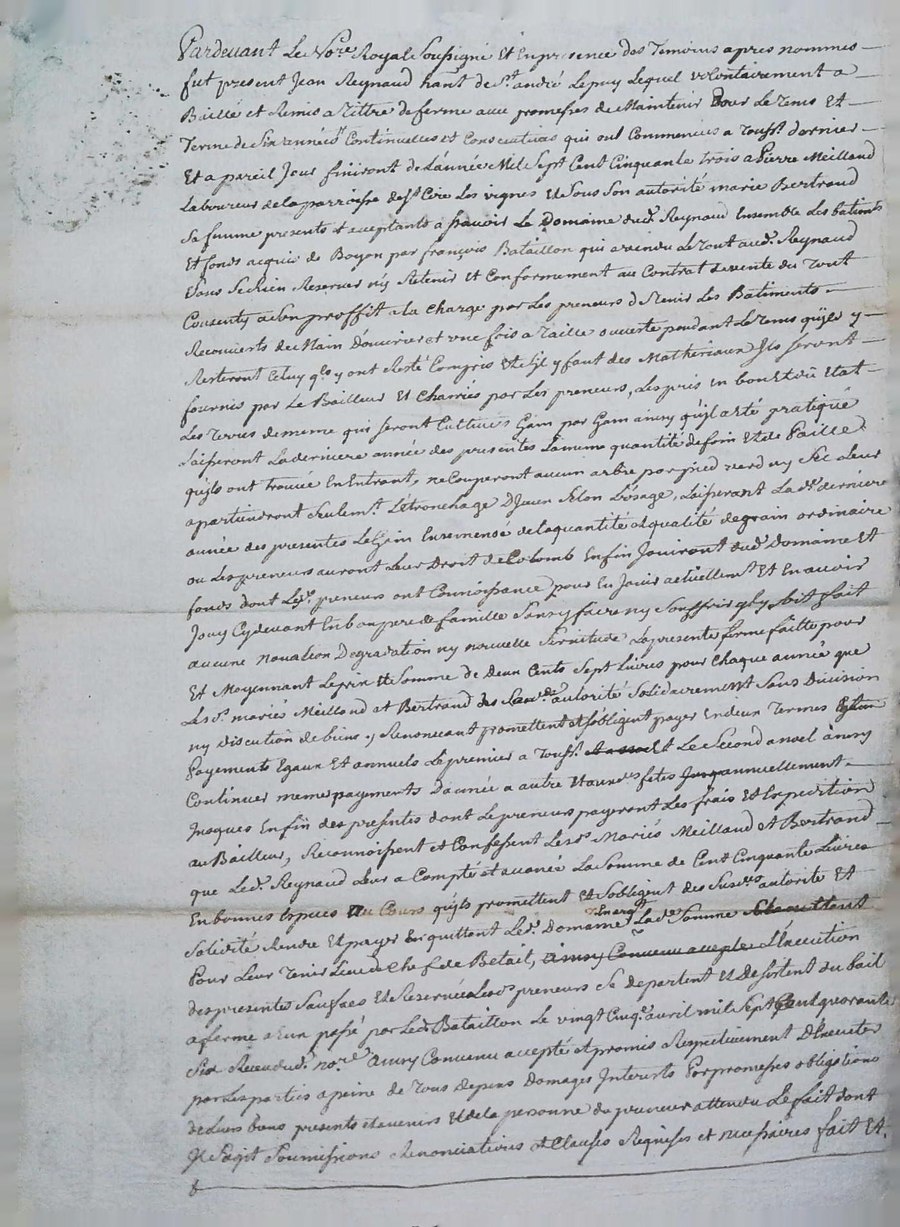 Pardevant Le No.re Royal Soussigné Et En presence des Temoins apres nommes
fut present Jean Reynaud hant de S.t andré Lepuy Lequel volontairement a
Baillé et Remis a Tittre de ferme avec promesses de Maintenir Pour Le Tems Et
Terme de Six années Continuelles et Consecutives qui ont Commencées a Touss.t dernier
Et a pareil Jour finiront de L'année Mil Sept Cent Cinquante trois a Pierre Meilland
Laboureur de la parroisse de S.t Cire Les vignes Et de Sous Son autorité marie Bertrand
Sa femme presents et aceptants a sçavoir Le Domaine dud. Reynaud Ensemble Les batiments
Et fonds acquis de Boyon par françois Bataillon qui a vendu Le Tout aud. Reynaud
Sans Se Rien Reserver ny Retenir Et Conformement au Contrat de vente du Tout
Consenty a Son proffit a la Charge par Les preneurs de Tenir Les Batiments
Recouverts de Main D'ouvrier et une fois a Taille ouverte pendant Le Tems qu'ils y
Resteront Celuy q.ls y ont Resté Compris Et S'il y faut des Matheriaux Ils Seront
fournis par Le Bailleur Et Charriés par Les preneurs, Les prés En bon Et dû Etat
Les Terres de meme qui Seront Cultivées Gain par Gain ainsy qu'il a eté pratiqué
Laisseront La derniere année des presentes La meme quantité de foin Et de Paille
qu'ils ont Trouvée En Entrant, ne Couperont aucun arbre par pied verd ny Sec Leur
apartiendront Seulem.t L'etronchage D'Iceux Selon L'usage, Laisseront La d.e derniere
année des presentes Le Gain Ensemensé de la quantité et qualité de grain ordinaire
ou Les preneurs auront Leur Droit de Colomb Enfin Jouiront dud. Domaine Et
fonds dont Les d. preneurs ont Connoissance pour En Jouir actuellem.t Et En avoir
Jouy Cy devant En bon pere de famille Sans y faire ny Souffrir q'il y Soit fait
aucune novation Degradation ny nouvelle Servitude La presente ferme faitte pour
Et Moyennant Le prix Et Somme de Deux Cents Sept Livres pour Chaque année que
Les d. mariés Meilland et Bertrand des Susd.es autorité Solidairement Sans Division
ny discution de biens y Renoncant promettent et S'obligent payer En deux Termes
Payements Egaux Et annuels Le premier a Touss.t Et Le Second a noel ainsy
Continuer meme payments D'année a autre Et aux d.es fetes annuellement
Jusques Enfin des presentes dont Le preneurs payeront Les frais Et Expedition
au Bailleur, Reconnoissent et Confessent Les d. Mariés Meilland et Bertrand
que Led. Reynaud Leur a Compté et avancé La Somme de Cent Cinquante Livres
En bonnes Especes au Cours qu'ils promettent Et S'obligent des Susd.es autorité Et
Solidité Rendre Et payer En quittant Led. Domaine La d.e Somme
Pour Leur Tenir Lieu de Chef de Betail, ainsy Convenu accepté L'Execution
des presentes Sauf ses Et Reservée Les d. preneurs Se departent Et Desistent du bail
a ferme a Eux passé par Led. Bataillon Le vingt Cinq.e avril mil Sept Cent quarante
Six Receu dud. no.re ainsy Convenu accepté et promis Respectivement D'Executer
par Les parties a peine de Tous Depens Domages Interets Par promesses obligations
de Leurs biens presents et avenirs Et de la personne du preneur attendu Le fait dont
Il S'agit Soumissions Renonciations et Clauses Requises et necessaires fait Et